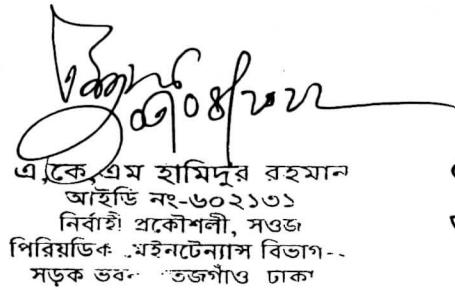 ০৩/০৪/২০২২
এ,কে,এম হামিদুর রহমান
আইডি নং-৬০২১৩১
নির্বাহী প্রকৌশলী, সওজ
পিরিয়ডিক মেইনটেন্যান্স বিভাগ--
সড়ক ভবন তেজগাঁও ঢাকা